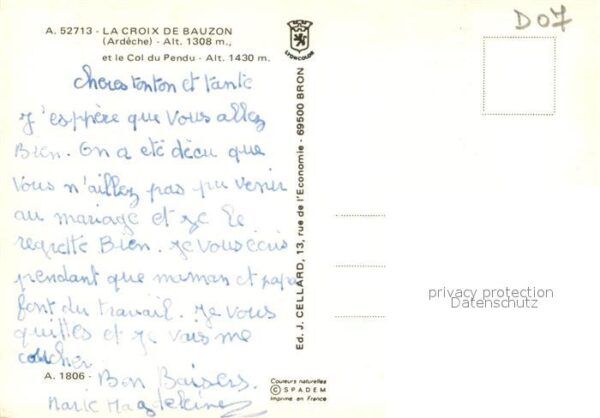 D07
A. 52713 - LA CROIX DE BAUZON
(Ardèche) - Alt. 1308 m.,
et le Col du Pendu - Alt. 1430 m.
LYONCOLOR
cheres tonton et tante
J'esppère que Vous allez
Bien. On a eté décu que
Vous n'aillez pas pu venir
au mariage et je le
regrette Bien. Je Vous écris
pendant que maman et papa
font du travail. Je Vous
quittes et je vais me
coucher
Bon Baisers.
Marie Magdeleine
A. 1806
Ed. J. CELLARD, 13, rue de l'Economie - 69500 BRON
Couleurs naturelles
© SPADEM
Imprimé en France
privacy protection
Datenschutz